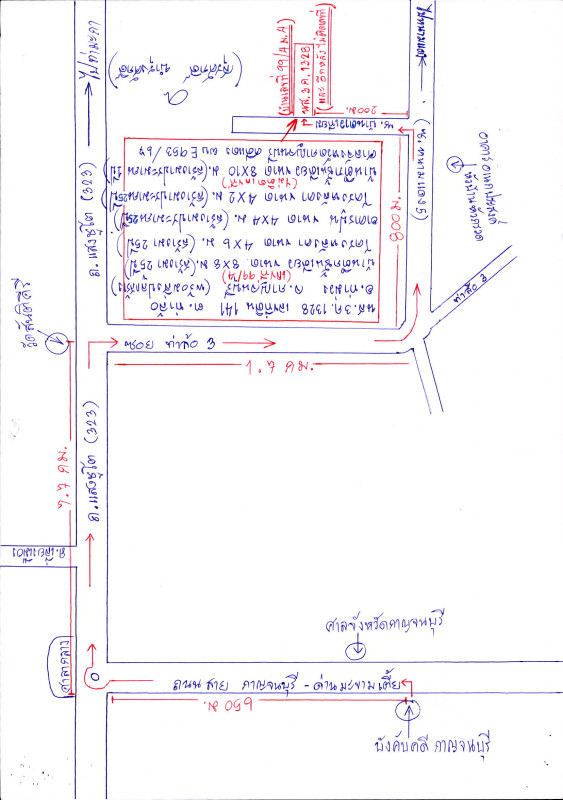 นส.3ค. 1328 เลขที่ดิน 141 ต. ท่าล้อ
อ. ท่าม่วง จ. กาญจนบุรี (พร้อมสิ่งปลูกสร้าง)
(เลขที่ 99/4)
บ้านตึกชั้นเดียว ขนาด 8X8 ม. (สร้างมา 25 ปี)
โครงหลังคา ขนาด 4X9 ม. (สร้างมา 25 ปี)
อาคารปูน ขนาด 4X4 ม. (สร้างมาประมาณ 25 ปี)
โครงหลังคา ขนาด 4X2 ม. (สร้างมาประมาณ 25 ปี)
(ไม่ติดเลขที่)
บ้านตึกชั้นเดียว ขนาด 8X10 ม. (สร้างมาประมาณ
ศาลจังหวัดกาญจนบุรี คดีแดง ผบ.E 953/64
(บ้านเลขที่ 99/4 ม.4)
นส.3ค. 1328
(และ อีกหลัง ไม่ติดเลขที่)
200 ม.
800 ม.
(ซ. ทหารผ่านศึก 5)
ท่าล้อ 3
ถ. แสงชูโต (323)
วัดสันติคีรี
ซอย ท่าล้อ 3
1.7 กม.
7.7 กม.
ถ. แสงชูโต (323)
ถ. เลี่ยงเมือง
ศาลากลาง
ศาลจังหวัดกาญจนบุรี
ถนนสาย กาญจนบุรี - ด่านมะขามเตี้ย
650 ม.
บังคับคดี กาญจนบุรี